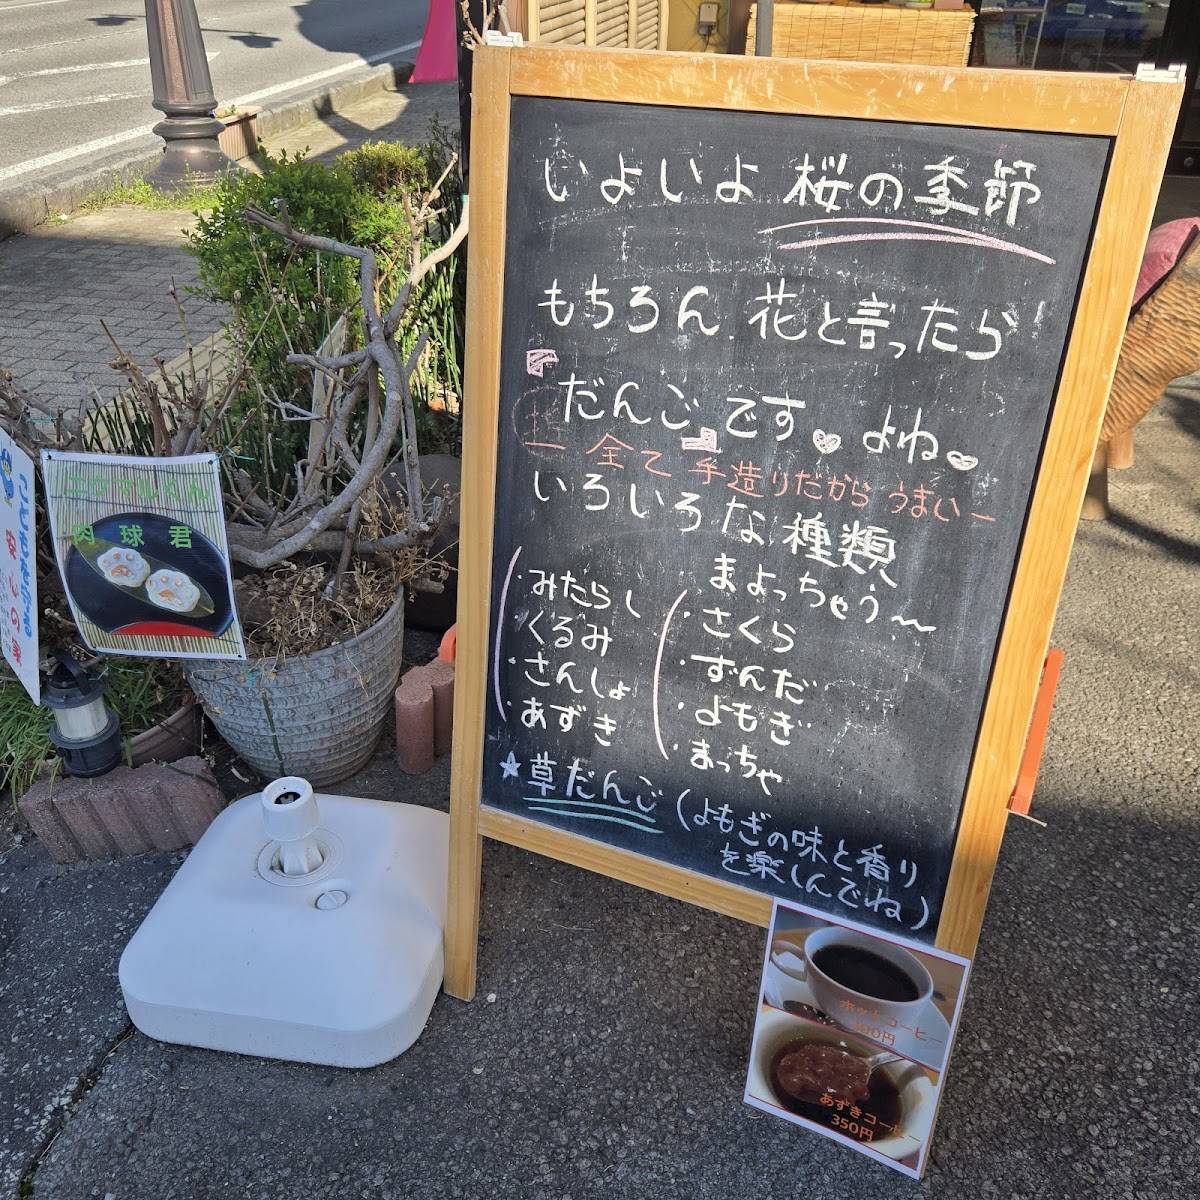 いよいよ 桜の季節
もちろん 花と言ったら
「だんご」です♥よね♥
ー 全て 手造りだから うまいー
いろいろな種類
まよっちゃう〜
・みたらし
・くるみ
・さんしょ
・あずき
・さくら
・ずんだ
・よもぎ
・まっちゃ
★草だんご(よもぎの味と香り
を楽しんでね)
肉球君
ホットコーヒー
300円
あずきコーヒー
350円